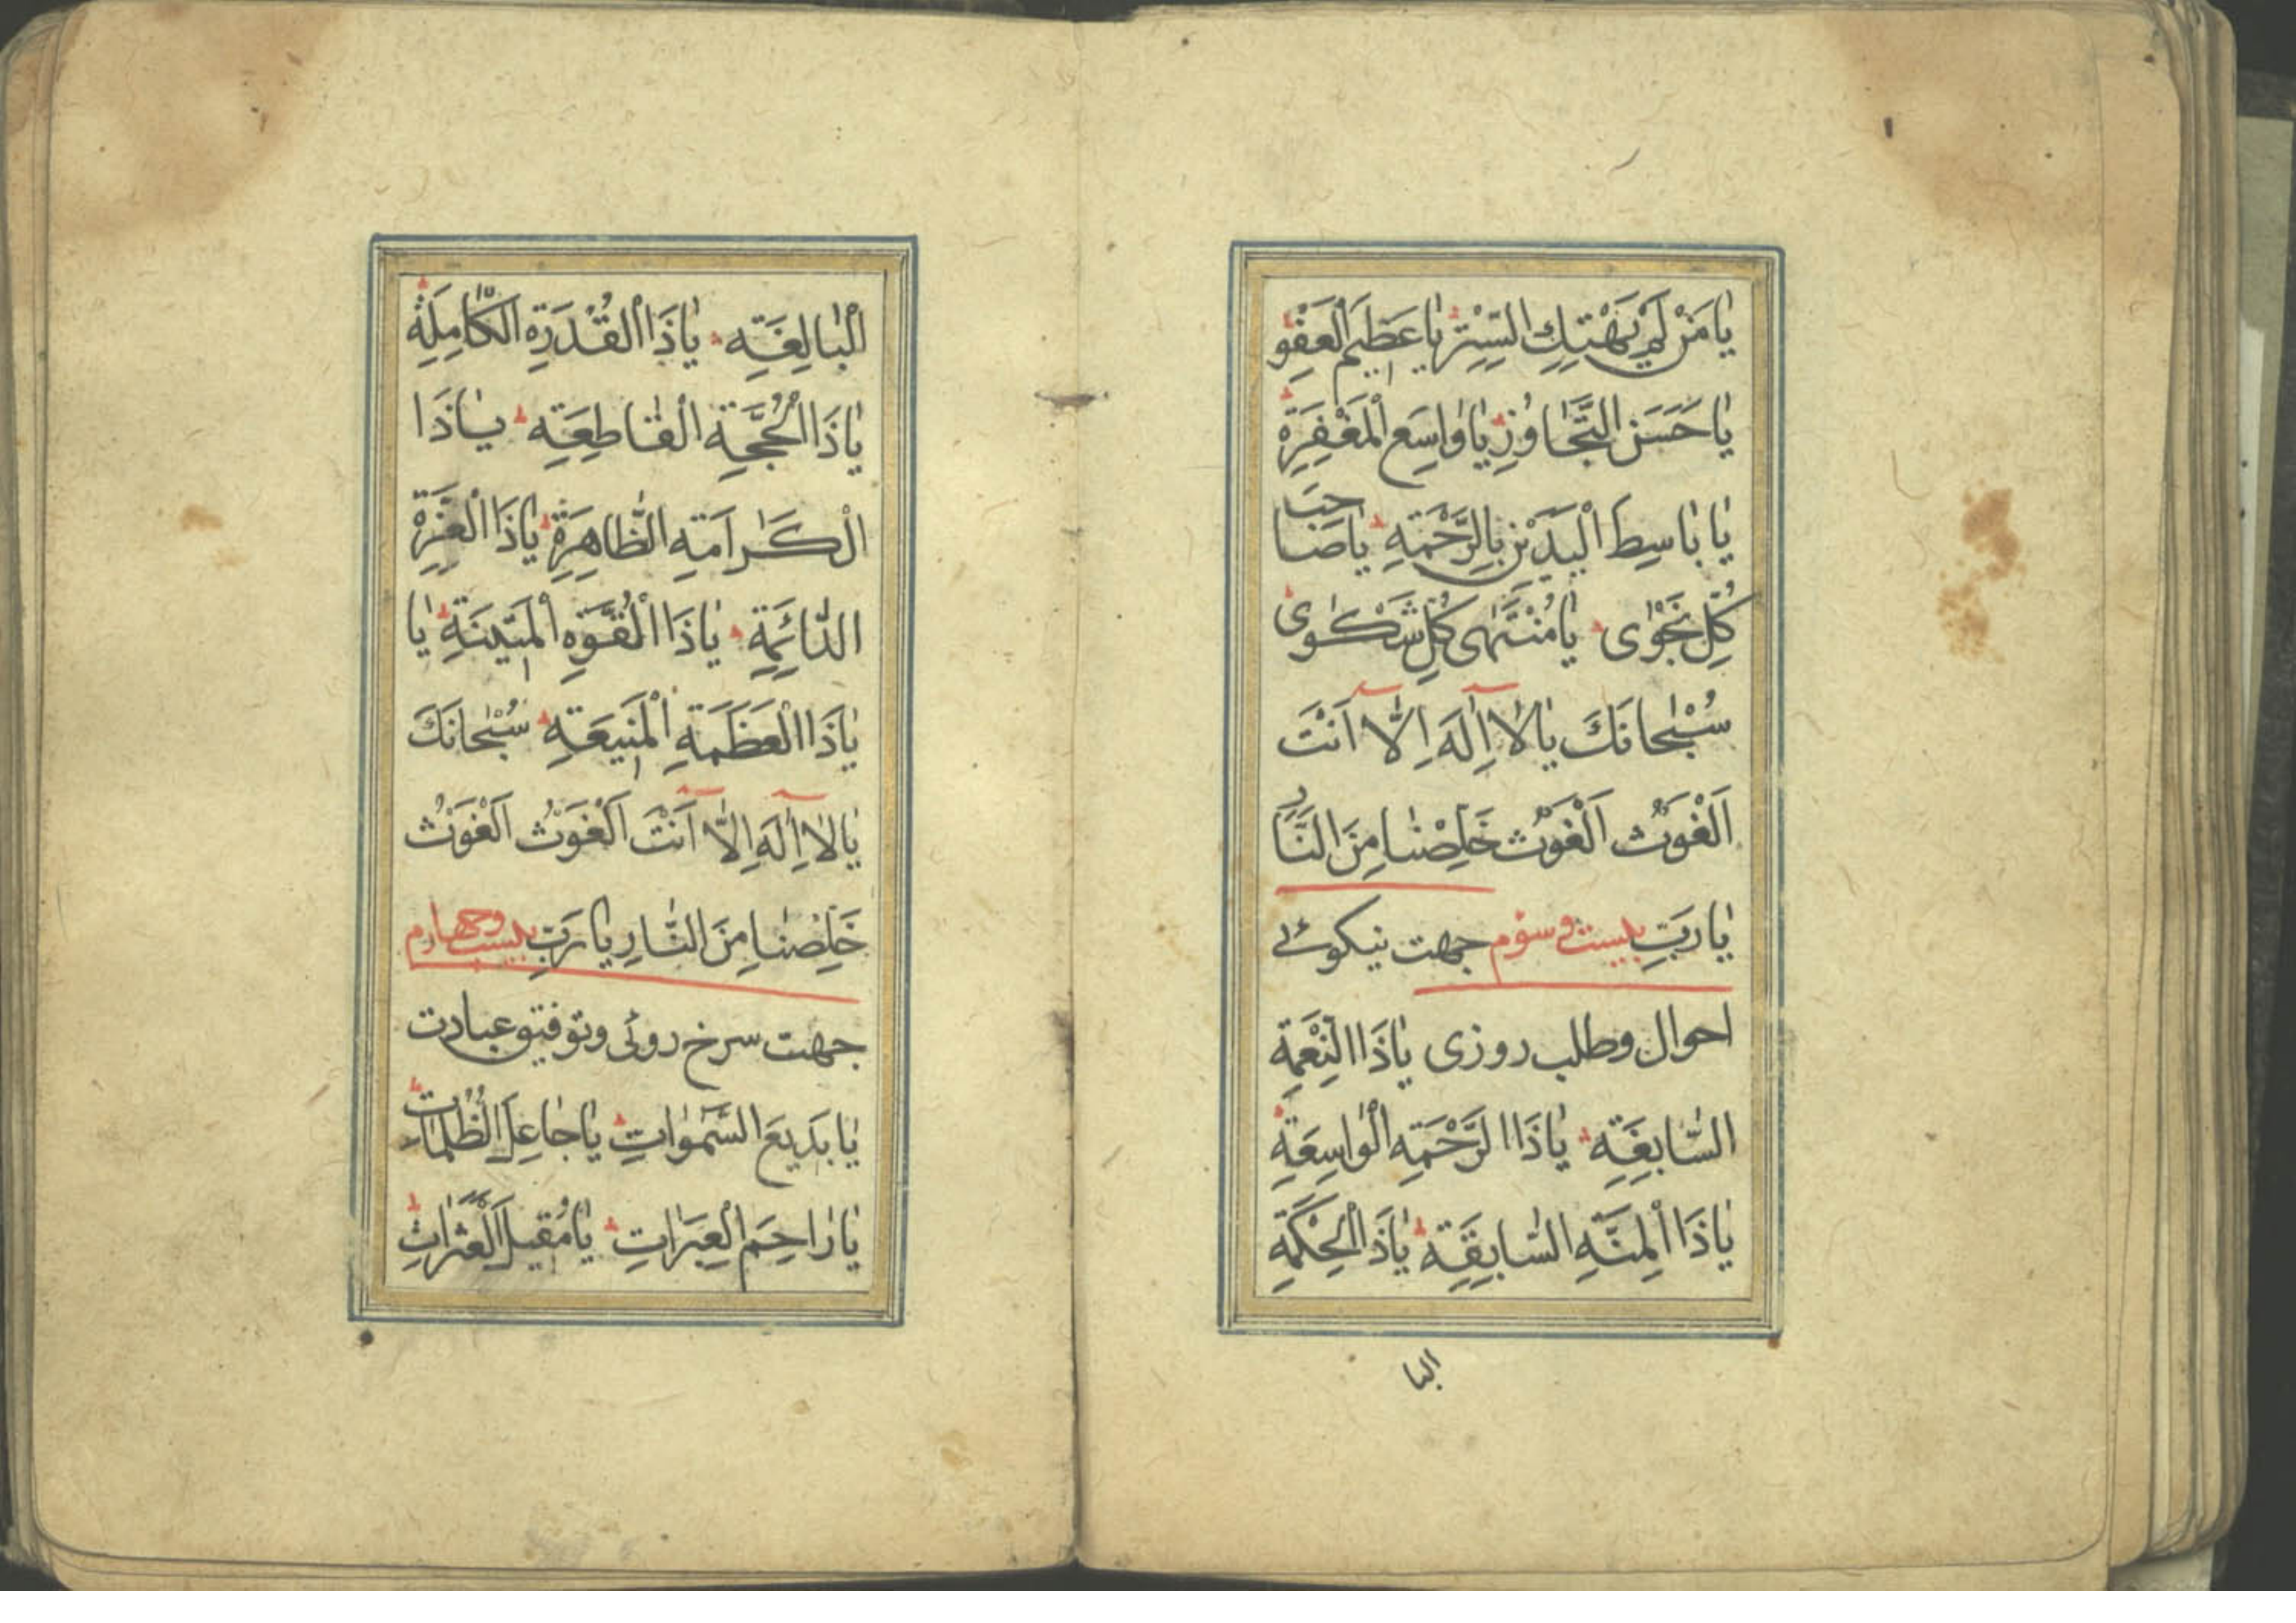 يٰا مَنْ لَمْ يَهْتِكِ السِّتْرَ يٰا عَظيمَ الْعَفْوِ
يٰا حَسَنَ التَّجٰاوُزِ يٰا وٰاسِعَ الْمَغْفِرَةِ
يٰا بٰاسِطَ الْيَدَيْنِ بِالرَّحْمَةِ يٰا صٰاحِبَ
كُلِّ نَجْوٰى يٰا مُنْتَهٰى كُلِّ شَكْوٰى
سُبْحٰانَكَ يٰا لٰا اِلٰهَ اِلّٰا اَنْتَ
اَلْغَوْثُ اَلْغَوْثُ خَلِّصْنٰا مِنَ النَّارِ
يٰا رَبِّ بیست و سوّم جهت نیکوئے
احوال و طلب روزی يٰا ذَا النِّعْمَةِ
السّٰابِغَةِ يٰا ذَا الرَّحْمَةِ الْوٰاسِعَةِ
يٰا ذَا الْمِنَّةِ السّٰابِقَةِ يٰا ذَا الْحِكْمَةِ
البا
الْبٰالِغَةِ يٰا ذَا الْقُدْرَةِ الْكٰامِلَةِ
يٰا ذَا الْحُجَّةِ الْقٰاطِعَةِ يٰا ذَا
الْكَرٰامَةِ الظّٰاهِرَةِ يٰا ذَا الْعِزَّةِ
الدّٰائِمَةِ يٰا ذَا الْقُوَّةِ الْمَتينَةِ يٰا
يٰا ذَا الْعَظَمَةِ الْمَنيعَةِ سُبْحٰانَكَ
يٰا لٰا اِلٰهَ اِلّٰا اَنْتَ اَلْغَوْثُ اَلْغَوْثُ
خَلِّصْنٰا مِنَ النّٰارِ يٰا رَبِّ بیست و چهارم
جهت سرخ روئی و توفیق عبادت
يٰا بَديعَ السَّمٰوٰاتِ يٰا جٰاعِلَ الظُّلُمٰاتِ
يٰا رٰاحِمَ الْعَبَرٰاتِ يٰا مُقيلَ الْعَثَرٰاتِ